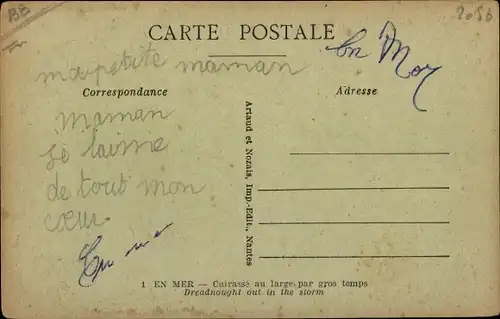 BB
CARTE POSTALE
En Mer
ma petite maman
Correspondance
Adresse
maman
je laime
de tout mon
cœur
Artaud et Nozais, Imp.-Edit., Nantes
1 EN MER — Cuirassé au large par gros temps
Dreadnought out in the storm